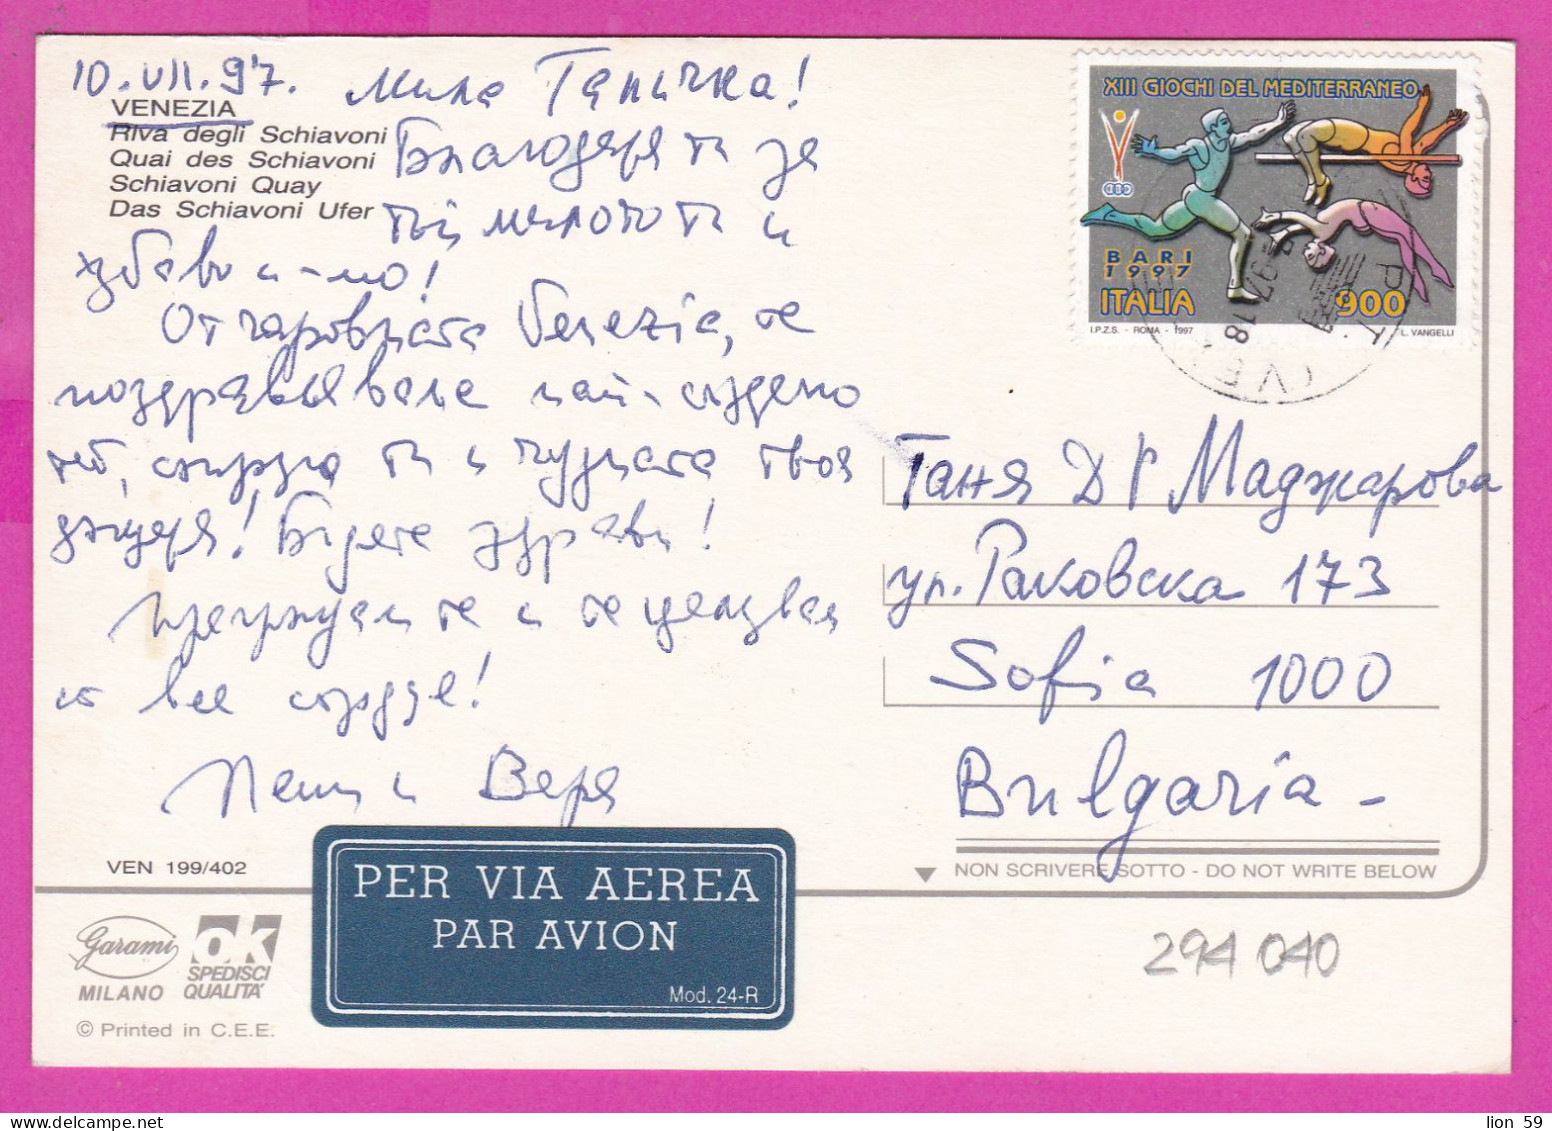 10.VII.97. Мила Таничка!
VENEZIA
Riva degli Schiavoni
Quai des Schiavoni
Schiavoni Quay
Das Schiavoni Ufer
Благодаря ти за
милото ти и
хубаво !
От чаровната Venezia, те
поздравяваме най-сърдечно
теб, и чудната твоя
дъщеря! Бъдете здрави!
Прегръщаме те и те целуваме
от все сърце!
и Вера
XIII GIOCHI DEL MEDITERRANEO
BARI
1997
ITALIA
900
I.P.Z.S. - ROMA - 1997
L. VANGELLI
Таня Др Маджарова
ул. Раковска 173
Sofia 1000
Bulgaria -
NON SCRIVERE SOTTO - DO NOT WRITE BELOW
VEN 199/402
PER VIA AEREA
PAR AVION
Mod. 24-R
Garami
MILANO
OK
SPEDISCI
QUALITA'
© Printed in C.E.E.
294040
lion 59